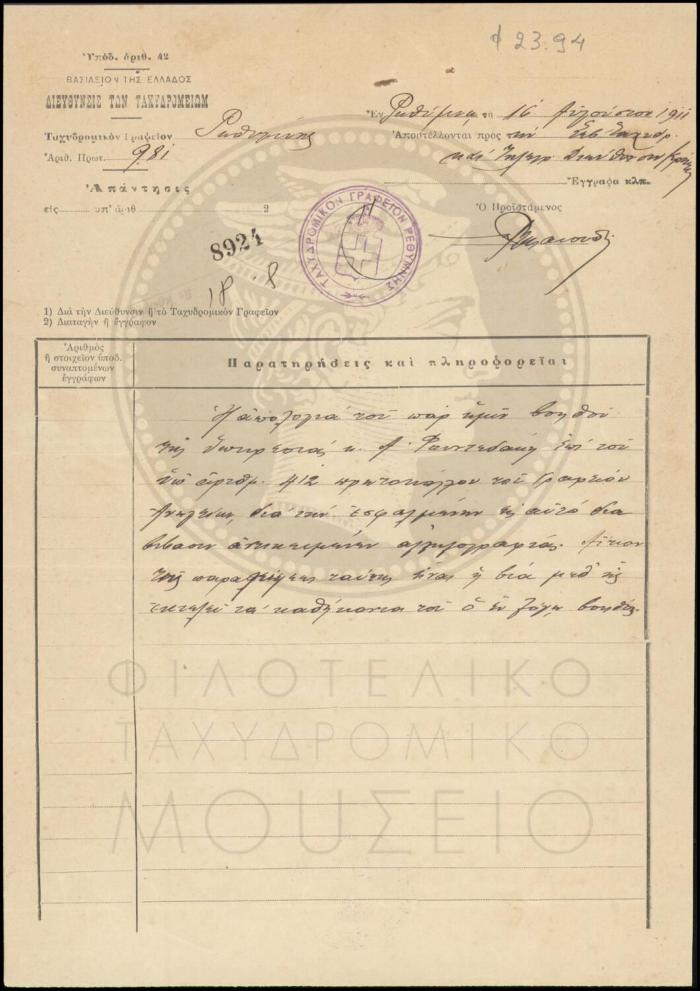 ₫ 23.94
Ὑπόδ. ἀριθ. 42
ΒΑΣΙΛΕΙΟΝ ΤΗΣ ΕΛΛΑΔΟΣ
ΔΙΕΥΘΥΝΣΙΣ ΤΩΝ ΤΑΧΥΔΡΟΜΕΙΩΝ
Ταχυδρομικὸν Γραφεῖον Ρεθύμνης
Ἀριθ. Πρωτ. 981
Ἀπάντησις
εἰς ὑπ' ἀριθ 2
Ἐν Ρεθύμνῃ τῇ 16 Αὐγούστου 1911
Ἀποστέλλονται πρὸς τὴν Σεβ Ταχυδρ.
καὶ Τηλεγρ. Διεύθυνσιν
Ἔγγραφα κλπ.
Ὁ Προϊστάμενος
ΤΑΧΥΔΡΟΜΙΚΟΝ ΓΡΑΦΕΙΟΝ ΡΕΘΥΜΝΗΣ
8924
18.8
1) Διὰ τὴν Διεύθυνσιν ἢ τὸ Ταχυδρομικὸν Γραφεῖον
2) Διαταγὴν ἢ ἔγγραφον
Ἀριθμὸς
ἢ στοιχεῖον ὑποδ.
συναπτομένων
ἐγγράφων
Παρατηρήσεις καὶ πληροφορεῖαι
Ἡ ἀπολογία τοῦ παρ' ἡμῖν βοηθοῦ
τῆς ὑπηρεσίας κ. Α. ἐπὶ τοῦ
ὑπ' ἀριθμ. 412 πρωτοκόλλου τοῦ Γραφείου
διὰ τὴν ἐσφαλμένην εἰς αὐτὸ δια
βίβασιν ἀντικειμένων ἀλληλογραφίας. Αἴτιον
τῆς ταύτης εἶναι ἡ βία μεθ' ἧς
ἐκτελεῖ τὰ καθήκοντα του ὁ ἐν λόγῳ βοηθός.
ΦΙΛΟΤΕΛΙΚΟ
ΤΑΧΥΔΡΟΜΙΚΟ
ΜΟΥΣΕΙΟ